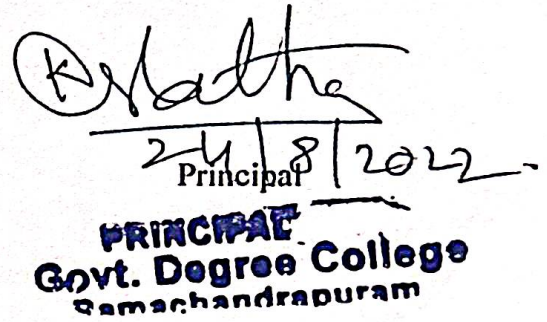 24/8/2022
Principal
PRINCIPAL
Govt. Degree College
Ramachandrapuram